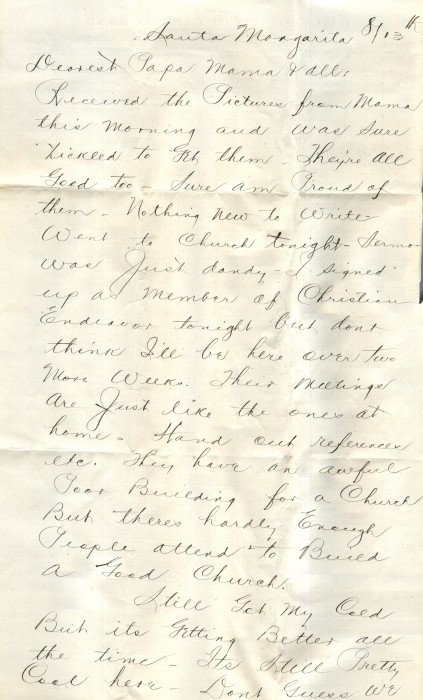 Santa Margarita 8/13th
Dearest Papa Mama & all:
Received the Pictures from Mama
this Morning and was Sure
Tickled to Get them - They're all
Good too - Sure am Proud of
them - Nothing New to Write -
Went to Church tonight - Sermon
was Just dandy - I signed
up as Member of Christian
Endeavor tonight but dont
think I'll be here over two
More Weeks. Their Meetings
are Just like the ones at
home - Hand out references
etc. They have an awful
Poor Building for a Church
But theres hardly Enough
People attend to Build
a Good Church.
Still Got My Cold
But its Getting Better all
the time - Its Still Pretty
Cool here - Dont Guess We